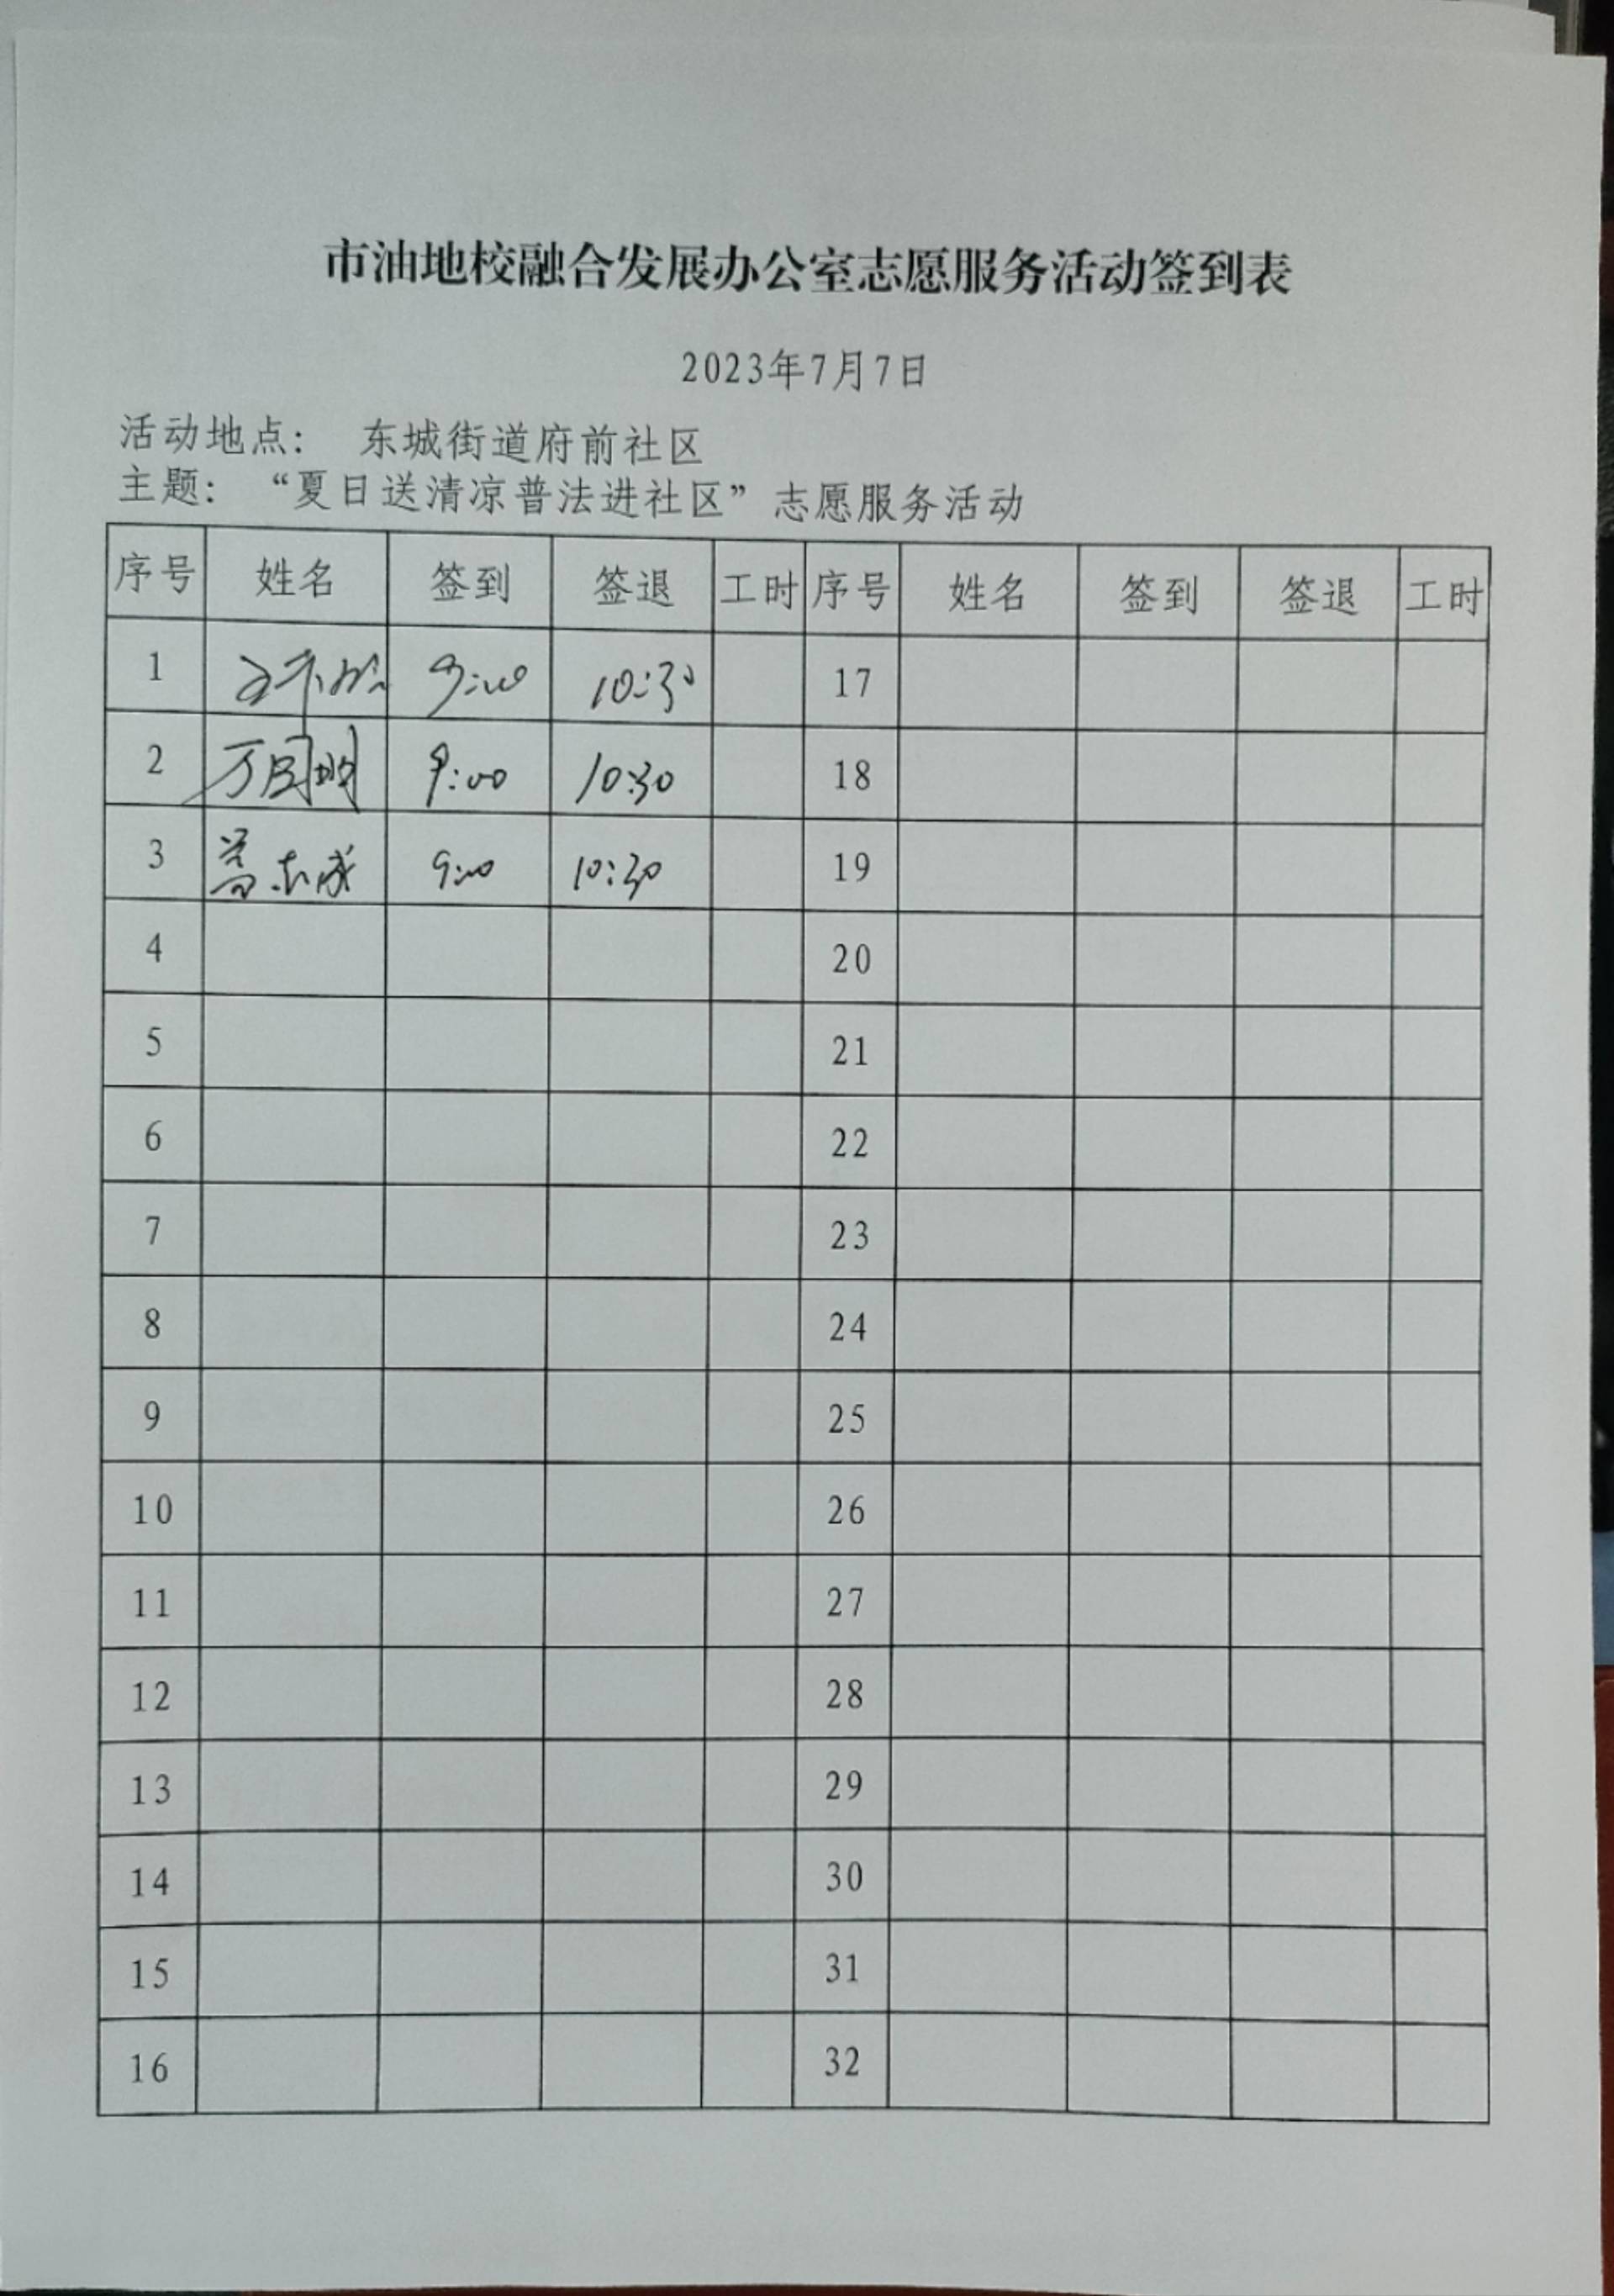 市油地校融合发展办公室志愿服务活动签到表
2023年7月7日
活动地点： 东城街道府前社区
主题：“夏日送清凉普法进社区”志愿服务活动
序号 姓名 签到 签退 工时 序号 姓名 签到 签退 工时
1 9:00 10:30 17
2 9:00 10:30 18
3 9:00 10:30 19
4 20
5 21
6 22
7 23
8 24
9 25
10 26
11 27
12 28
13 29
14 30
15 31
16 32